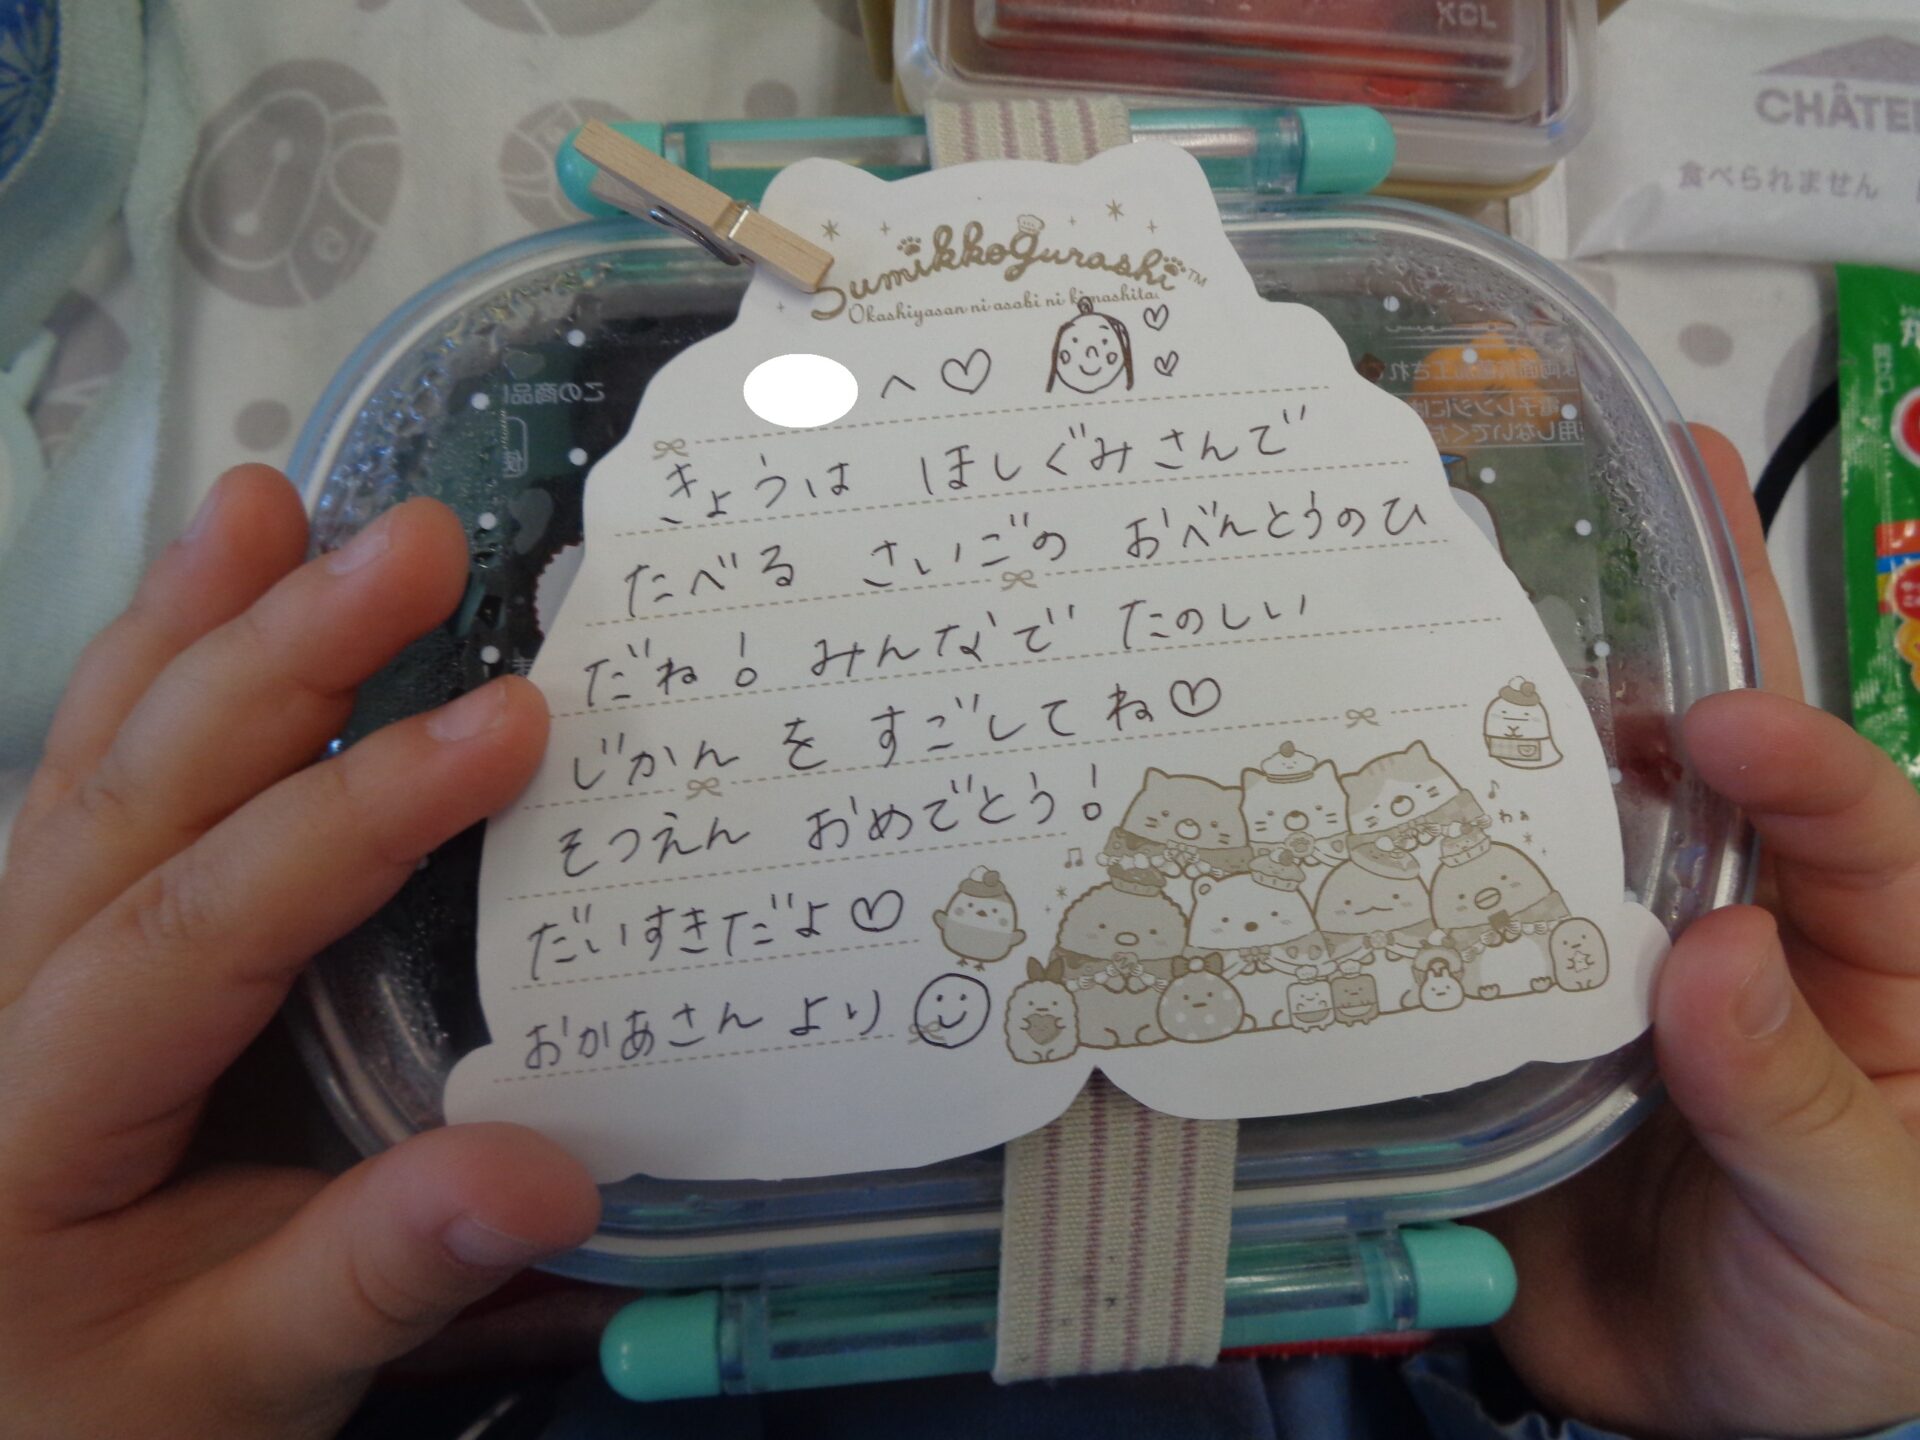 KCL
CHÂTE
食べられません
Sumikkogurashi™
Okashiyasan ni asobi ni kimashita.
へ♡
きょうは ほしぐみさんで
たべる さいごの おべんとうのひ
だね! みんなで たのしい
じかん を すごしてね♡
そつえん おめでとう!
だいすきだよ♡
おかあさん より
わぁ
この商品
電子レンジ
用しないでくだ